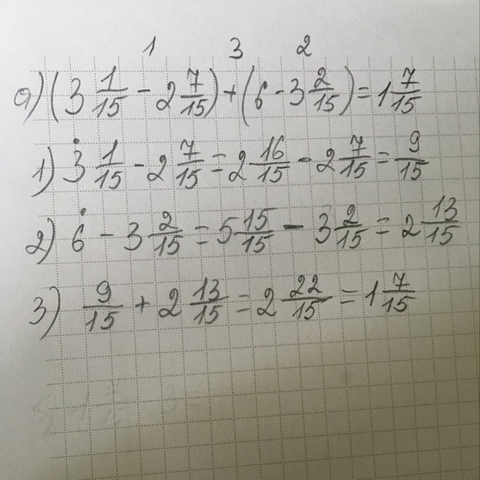 1 3 2
а) (3 1/15 - 2 7/15) + (6 - 3 2/15) = 1 7/15
1) 3 1/15 - 2 7/15 = 2 16/15 - 2 7/15 = 9/15
2) 6 - 3 2/15 = 5 15/15 - 3 2/15 = 2 13/15
3) 9/15 + 2 13/15 = 2 22/15 = 1 7/15